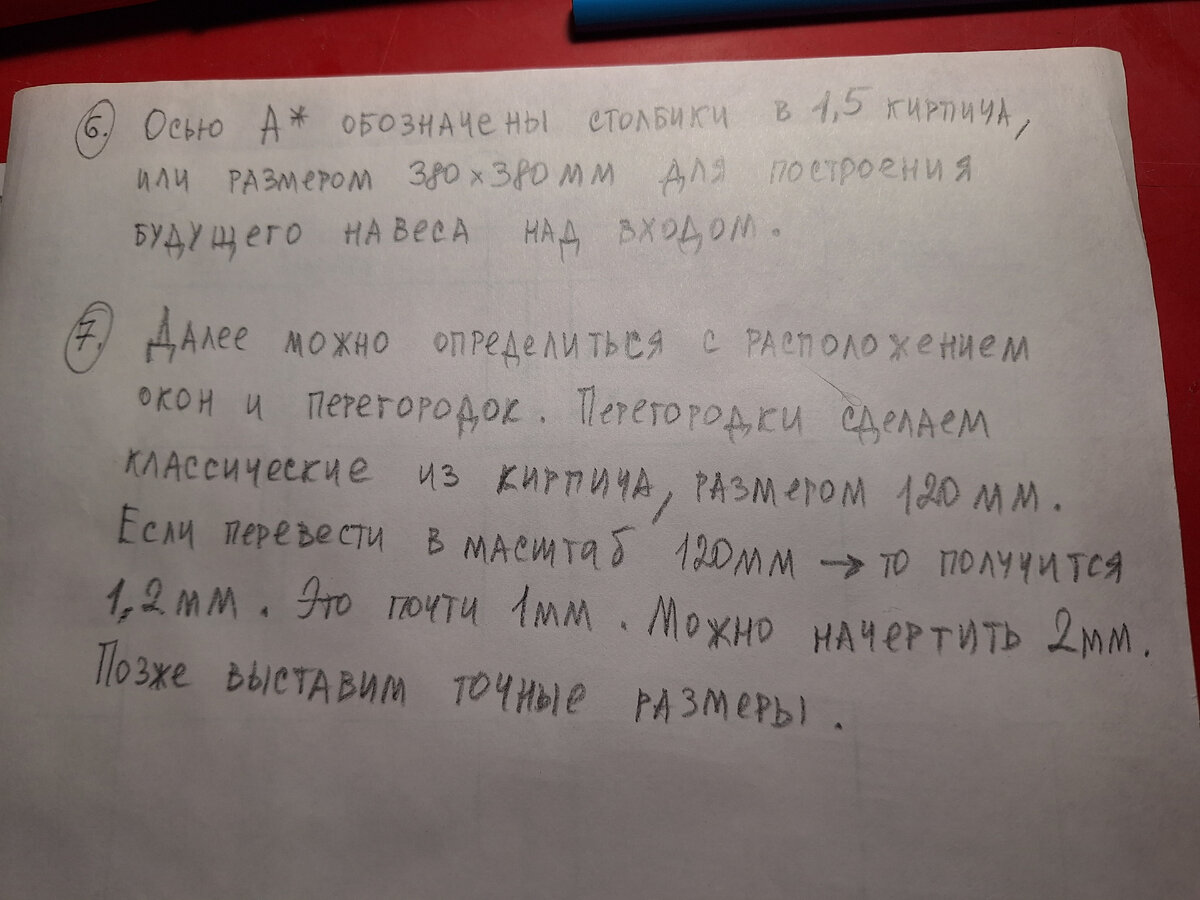 6. Осью А* обозначены столбики в 1,5 кирпича,
или размером 380×380 мм для построения
будущего навеса над входом.
7. Далее можно определиться с расположением
окон и перегородок. Перегородки сделаем
классические из кирпича, размером 120 мм.
Если перевести в масштаб 120мм → то получится
1,2 мм. Это почти 1мм. Можно начертить 2мм.
Позже выставим точные размеры.